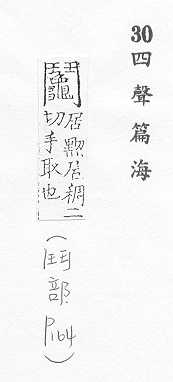 30四聲篇海
鬮
居黝居稠二
切手取也
(鬥部 P.164)